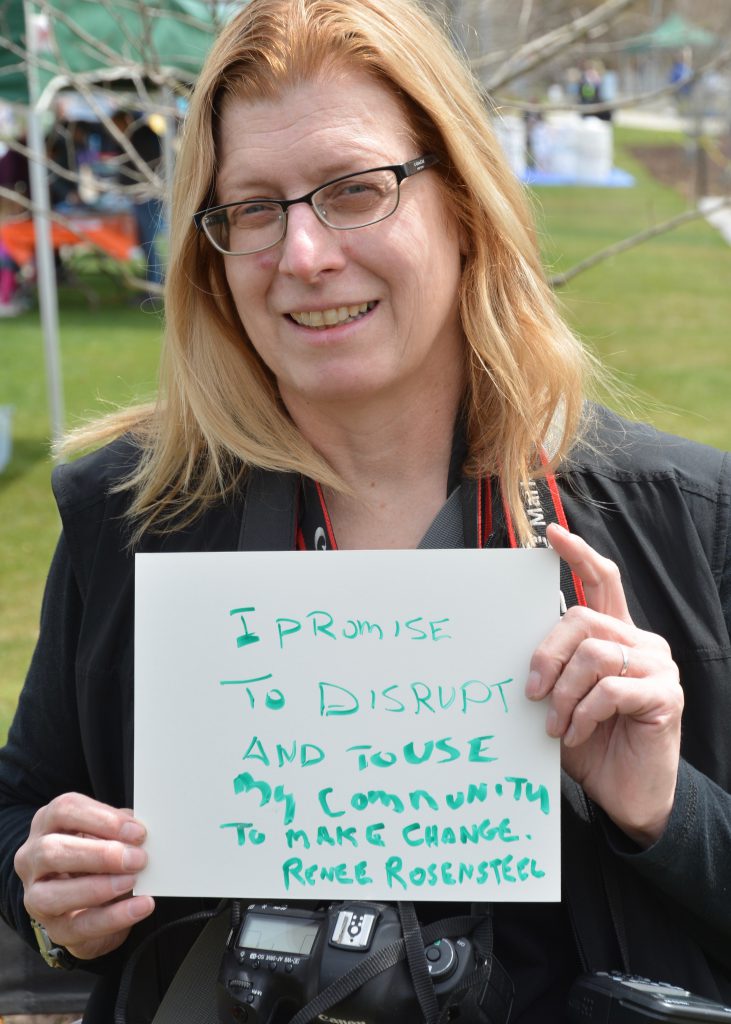 I PROMISE
TO DISRUPT
AND TO USE
My COMMUNITY
TO MAKE CHANGE.
RENEE ROSENSTEEL
Canon